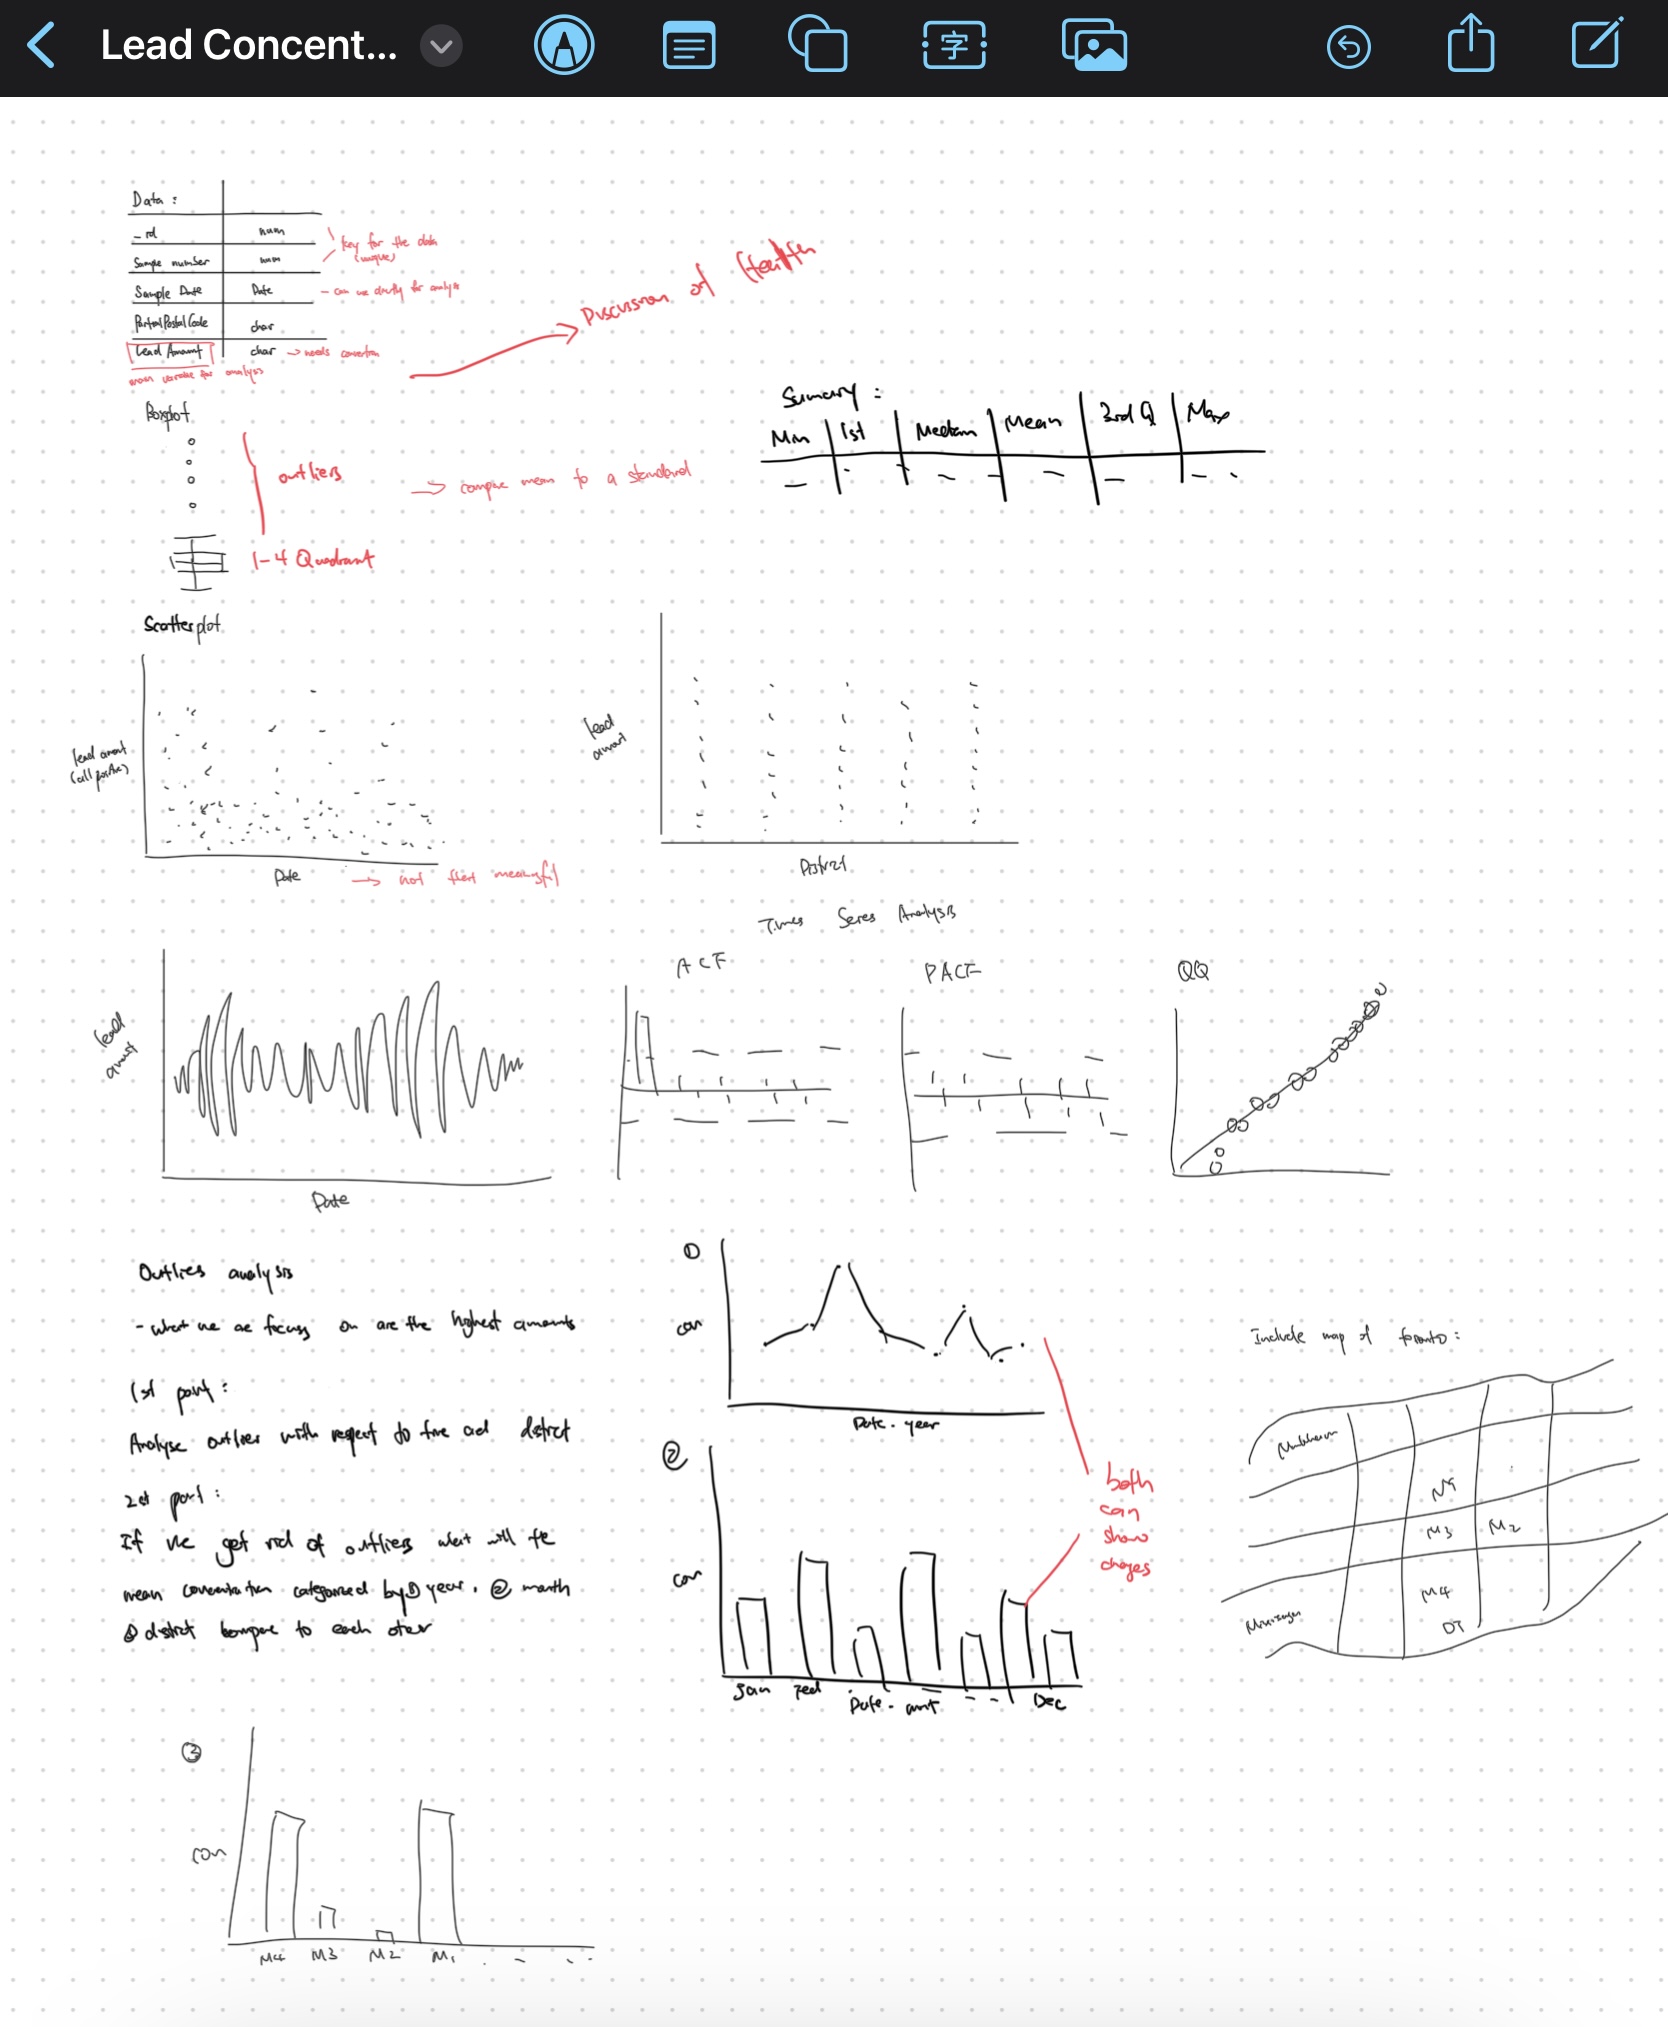 Lead Concent...
字
Data :
_ id num
Sample number num
key for the data
(unique)
Sample Date Date - can use directly for analysis
PartialPostalCode char
Lead Amount char → needs convertion
main variable for analysis
Discussion of
Boxplot
outliers
→ compare mean to a standard
1-4 Quadrant
Summary :
Min 1st Median Mean 3rd Q Max
Scatterplot
lead amont
(all positive)
Date → not that meaningful
lead
amount
District
Times Series Analysis
lead
amount
Date
ACF
PACF
QQ
Outlies analysis
- what we are focusing on are the highest amounts
1st part :
Analyse outlier with respect to time and district
2st part :
If we get rid of outliers what will the
mean concentration categorized by ① year, ② month
③ district compare to each other
①
con
Date - year
②
con
Jan Feb Dec
Date - amt
both
can
show
changes
Include map of toronto :
M3 M2
M4
DT
③
con
M4 M3 M2 M1